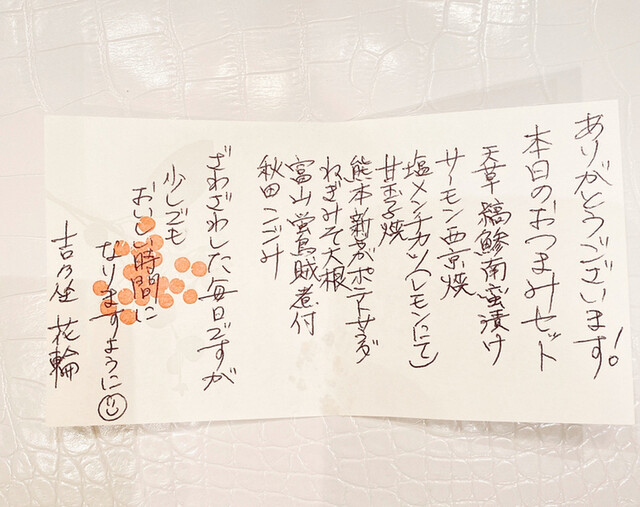 ありがとうございます!
本日のおつまみセット
天草縞鯵南蛮漬け
サーモン西京焼
塩メンチカツ(レモンにて)
甘玉子焼
熊本新じゃがポテトサラダ
ねぎみそ大根
富山蛍烏賊煮付
秋田こごみ
ざわざわした毎日ですが
少しでも
おいしい時間に
なりますように
花輪